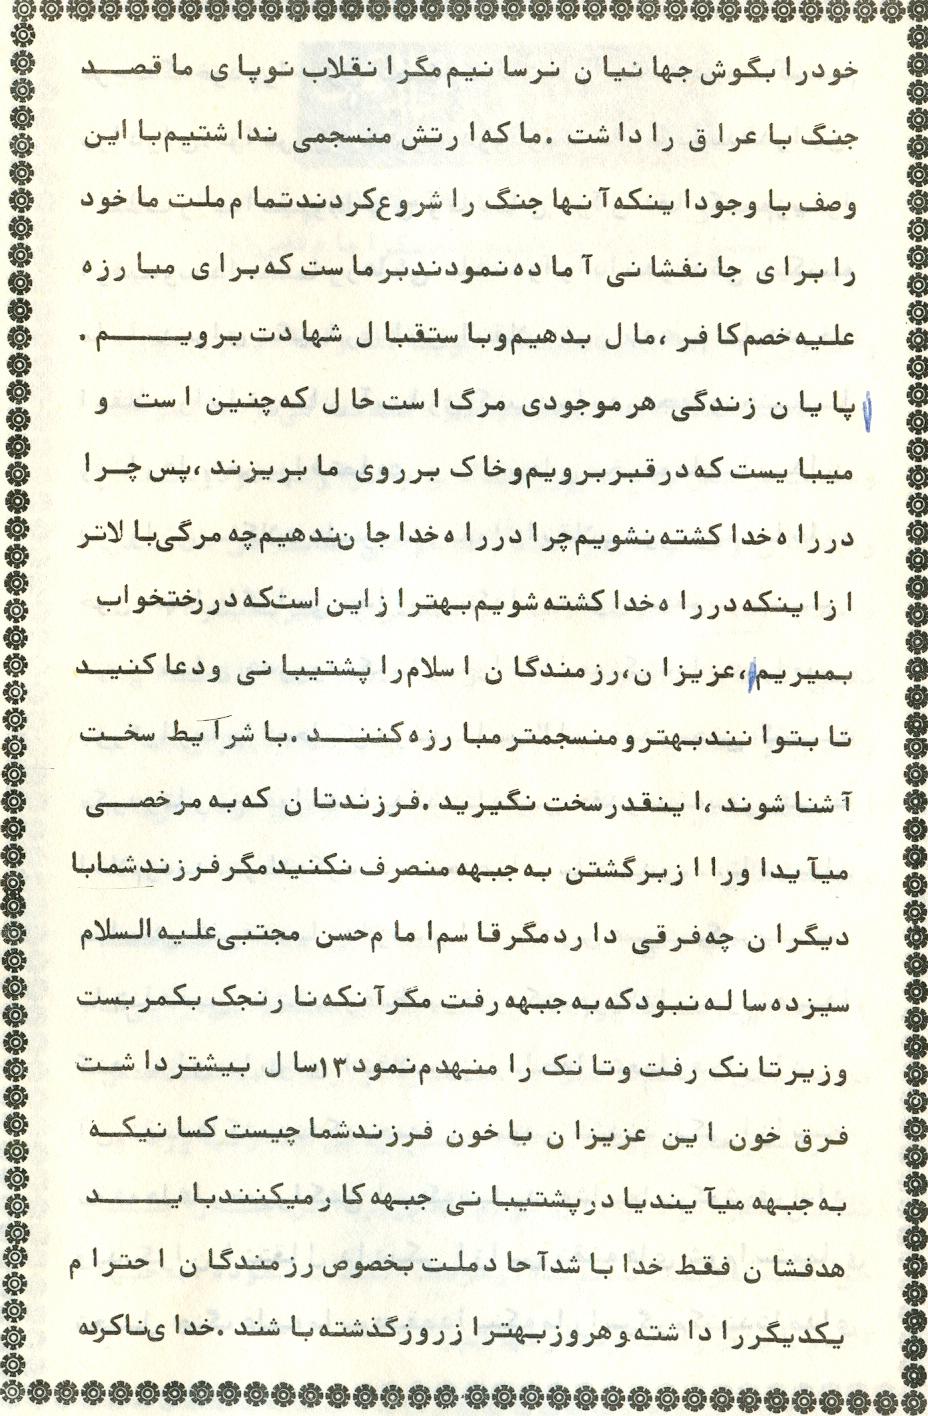 خود را بگوش جهانیان نرسانیم مگر انقلاب نوپای ما قصد
جنگ با عراق را داشت . ما که ارتش منسجمی نداشتیم با این
وصف با وجود اینکه آنها جنگ را شروع کردند تمام ملت ما خود
را برای جانفشانی آماده نمودند بر ماست که برای مبارزه
علیه خصم کافر ، مال بدهیم و باستقبال شهادت برویم .
پایان زندگی هر موجودی مرگ است حال که چنین است و
میبایست که در قبر برویم و خاک بر روی ما بریزند ، پس چرا
در راه خدا کشته نشویم چرا در راه خدا جان ندهیم چه مرگی بالاتر
از اینکه در راه خدا کشته شویم بهتر از این است که در رختخواب
بمیریم ، عزیزان ، رزمندگان اسلام را پشتیبانی و دعا کنید
تا بتوانند بهتر و منسجمتر مبارزه کنند . با شرآیط سخت
آشنا شوند ، اینقدر سخت نگیرید . فرزندتان که به مرخصی
میآید او را از برگشتن به جبهه منصرف نکنید مگر فرزند شما با
دیگران چه فرقی دارد مگر قاسم امام حسن مجتبی علیه السلام
سیزده ساله نبود که به جبهه رفت مگر آنکه نارنجک بکمر بست
و زیر تانک رفت و تانک را منهدم نمود ۱۳ سال بیشتر داشت
فرق خون این عزیزان با خون فرزند شما چیست کسانیکه
به جبهه میآیند یا در پشتیبانی جبهه کار میکنند باید
هدفشان فقط خدا باشد آحاد ملت بخصوص رزمندگان احترام
یکدیگر را داشته و هر روز بهتر از روز گذشته باشند . خدای ناکرده